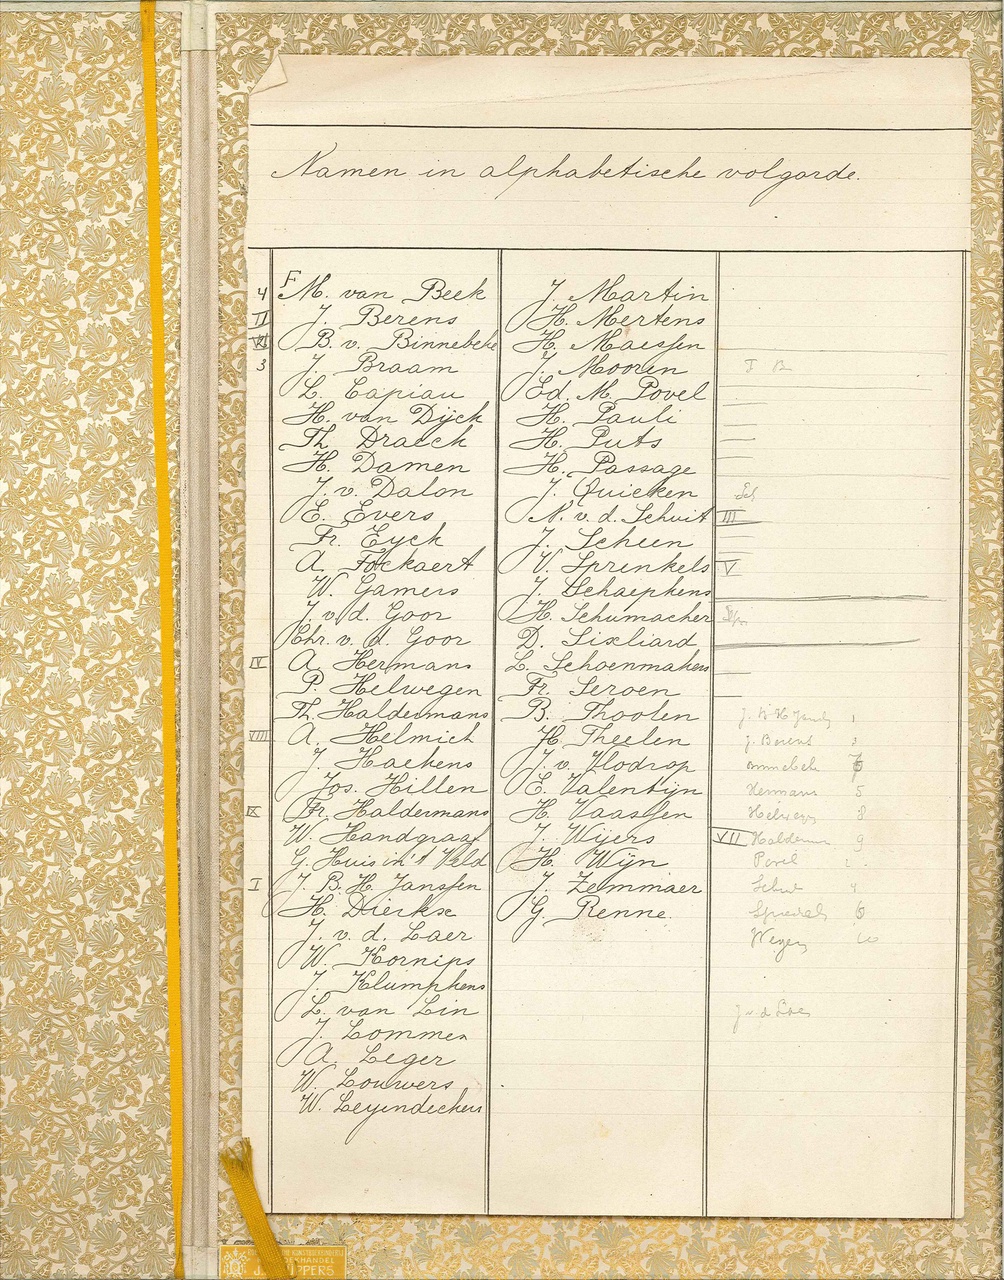 Namen in alphabetische volgorde.
4 F M. van Beek
II J. Berens
VI B. v. Binnebeke
3 J. Braam
L. Capiau
H. van Dijck
Th. Draeck
H. Damen
J. v. Dalon
E. Evers
Fr. Eyck
A. Fockaert
W. Gamers
J. v. d. Goor
Chr. v. d. Goor
IV A. Hermans
P. Helwegen
Th. Haldermans
VIII A. Helmich
J. Haekens
Jos. Hillen
IX Fr. Haldermans
W. Handgraaf
G. Huis in 't Veld
I J. B. H. Janssen
H. Dierkse
J. v. d. Laer
W. Kornips
J. Klumphens
L. van Lin
J. Lommen
A. Leger
W. Louwers
W. Leyendeckers
J. Martin
H. Mertens
H. Maessen
J. Mooren
Ed. M. Povel
H. Pauli
H. Puts
H. Passage
J. Quicken
N. v. d. Schuit III
J. Scheen
V. Sprenkels V
J. Schaepkens
H. Schumacher
D. Sixliard
L. Schoenmakers
Fr. Seroen
B. Thoolen
H. Theelen
J. v. Vlodrop
E. Valentijn
H. Vaassen
J. Wijers VII
H. Wijn
J. Zelmmaer
G. Renne.
J. B. H. Janss 1
J. Berens
Hermans 5
Helweg 8
Halderm 9
Povel
Schui 4
Sprenkels 6
Weyers 10
J v d Laer
BOEKHANDEL